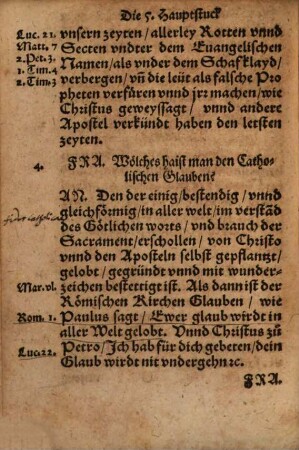 Die 5. Hauptstuck
Luc. 21. vnsern zeyten / allerley Rotten vnnd
Matt. 7 Secten vndter dem Euangelischen
2. Pet. 3. Namen / als vnder dem Schafklayd /
1. Tim. 4 verbergen / vñ die leüt als falsche Pro
2. Tim. 3 pheten verfüren vnnd jrꝛ machen / wie
Christus geweyssagt / vnnd andere
Apostel verkündt haben den letsten
zeyten.
4. FRA. Wölches haist man den Catho-
lischen Glauben?
AN. Den der einig / bestendig / vnnd
gleichförmig / in aller welt / im verstãd
des Götlichen worts / vnd brauch der
Sacrament / erschollen / von Christo
vnnd den Aposteln selbst gepflantzt /
gelobt / gegründt vnnd mit wunder-
Mar. vl. zeichen bestettigt ist. Als dann ist der
Römischen Kirchen Glauben / wie
Rom. 1. Paulus sagt / Ewer glaub wirdt in
aller Welt gelobt. Vnnd Christus zů
Luc. 22. Petro / Ich hab für dich gebeten / dein
Glaub wirdt nit vndergehn ꝛc.
FRA.